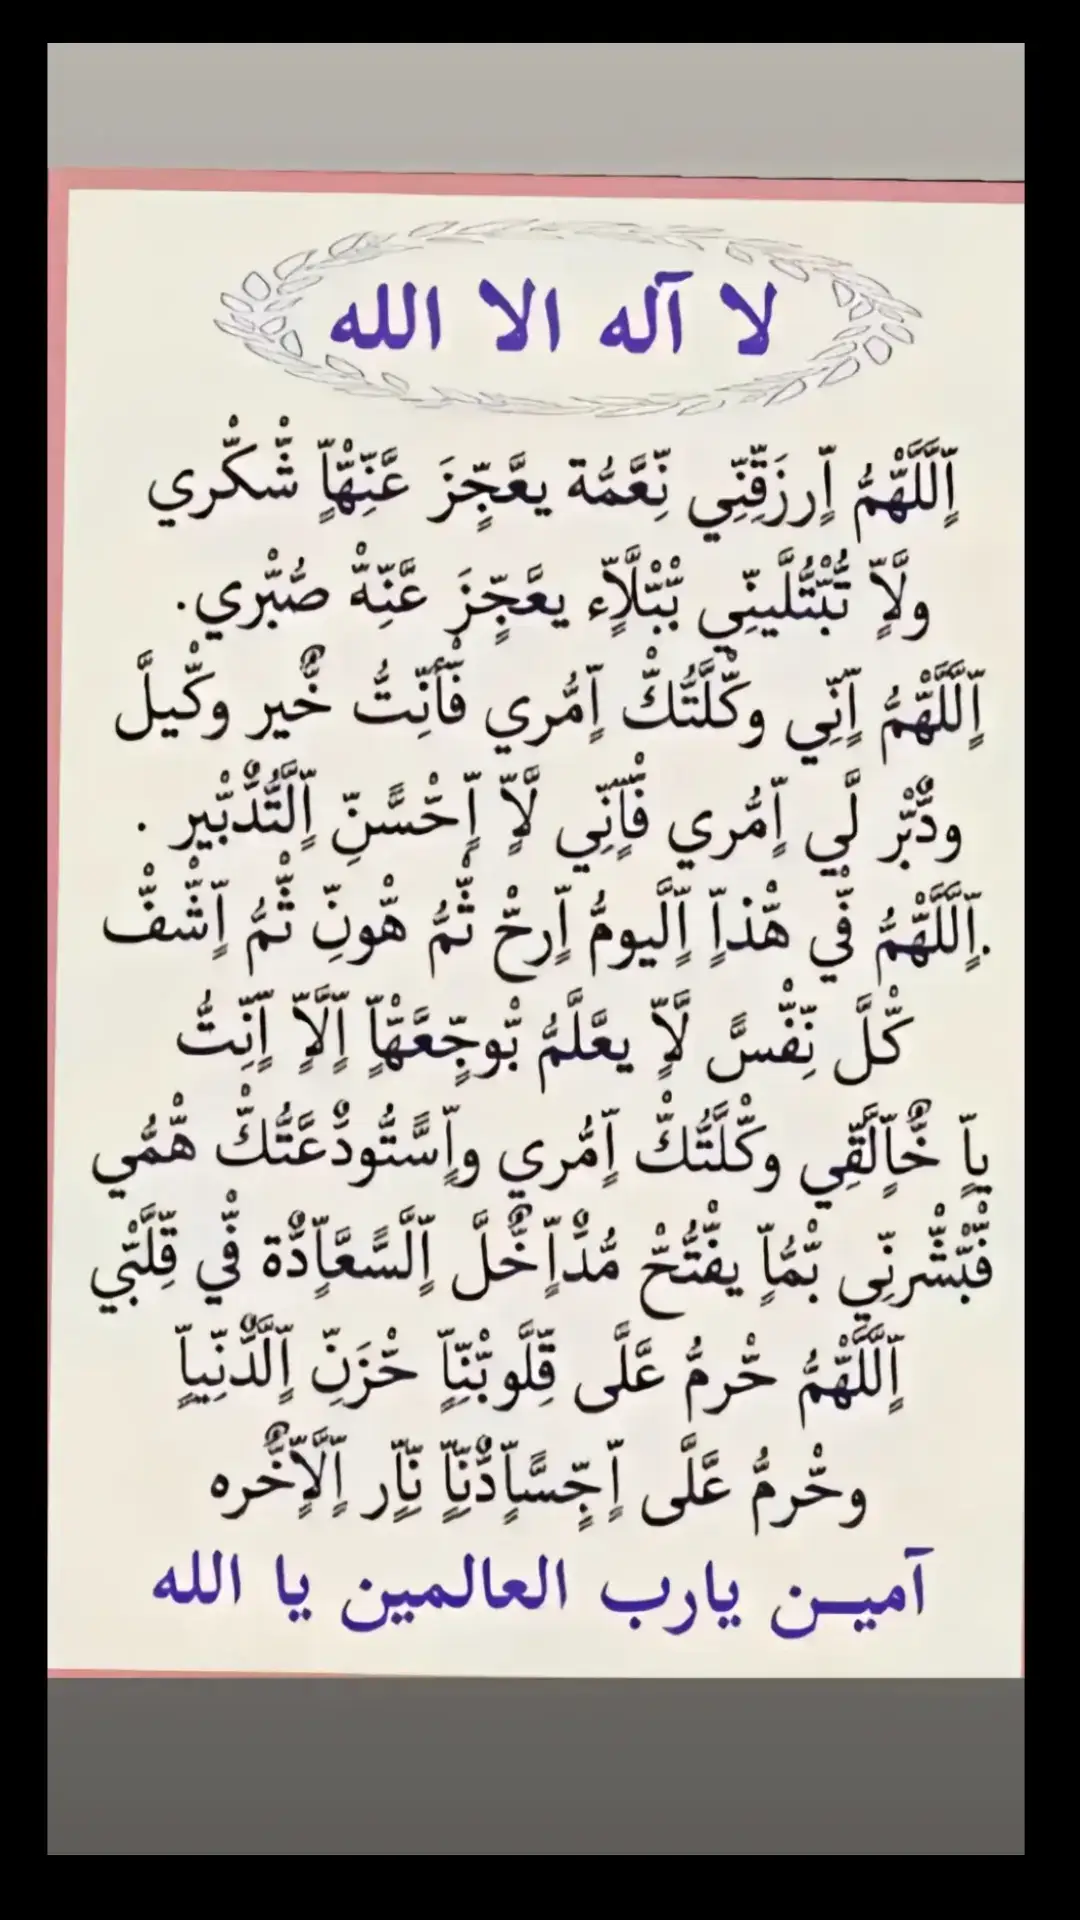 لا آله الا الله
اللهم ارزقني نعمة يعجز عنها شكري
ولا تبتليني ببلاء يعجز عنه صبري.
اللهم اني وكلتك امري فأنت خير وكيل
ودبر لي امري فآني لا احسن التدبير .
.اللهم في هذا اليوم ارح ثم هون ثم اشف
كل نفس لا يعلم بوجعها الا انت
يا خالقي وكلتك امري واستودعتك همي
فبشرني بما يفتح مداخل السعادة في قلبي
اللهم حرم على قلوبنا حزن الدنيا
وحرم على اجسادنا نار الاخره
آميـن يارب العالمين يا الله